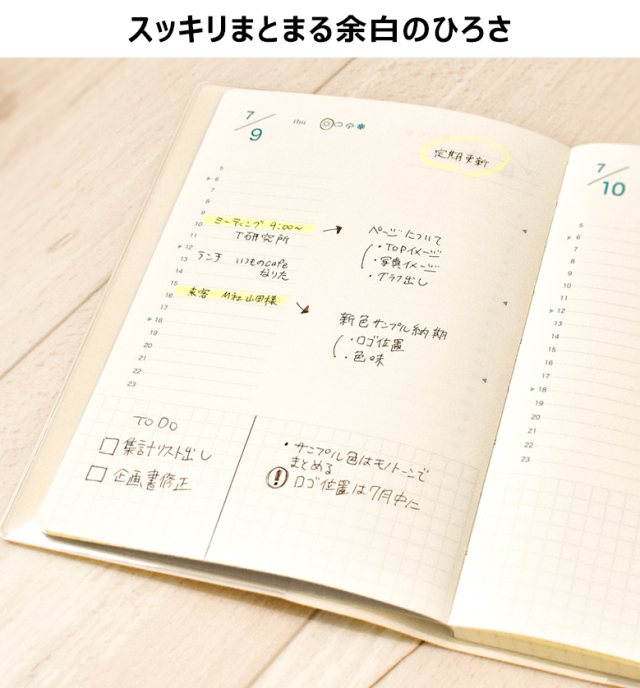 スッキリまとまる余白のひろさ
7/9
thu
定期更新
5
6
7
8
9
10 ミーティング 9:00〜
11 T研究所
12
13 ランチ いつものcafe
14 なりた
15
16 来客 M社山田様
17
18
19
20
21
22
23
ページについて
・TOPイメージ
・写真イメージ
・グラフ出し
新色サンプル納期
・ロゴ位置
・色味
TODO
□ 集計リスト出し
□ 企画書修正
・サンプル色はモノトーンで
まとめる
! ロゴ位置は7月中に
7/10
5
6
7
8
9
10
11
12
13
14
15
16
17
18
19
20
21
22
23